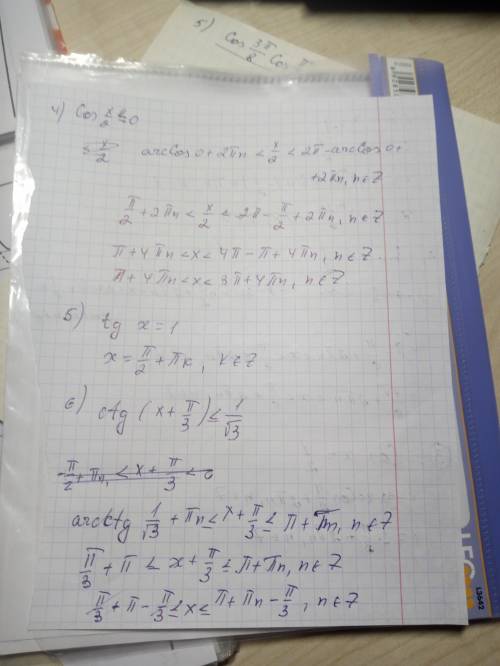 5) cos 3π/8 cos π
4) cos x/2 ≤ 0
≤ x/2 arccos 0 + 2πn < x/2 < 2π - arccos 0 +
+ 2πn, n∈Z
π/2 + 2πn < x/2 < 2π - π/2 + 2πn, n∈Z
π + 4πn < x < 4π - π + 4πn, n∈Z
π + 4πn < x < 3π + 4πn, n∈Z
5) tg x = 1
x = π/2 + πk, k∈Z
6) ctg (x + π/3) ≤ 1/√3
-π/2 + πn < x + π/3 < 0
arcctg 1/√3 + πn ≤ x + π/3 ≤ π + πn, n∈Z
π/3 + π ≤ x + π/3 ≤ π + πn, n∈Z
π/3 + π - π/3 ≤ x ≤ π + πn - π/3, n∈Z